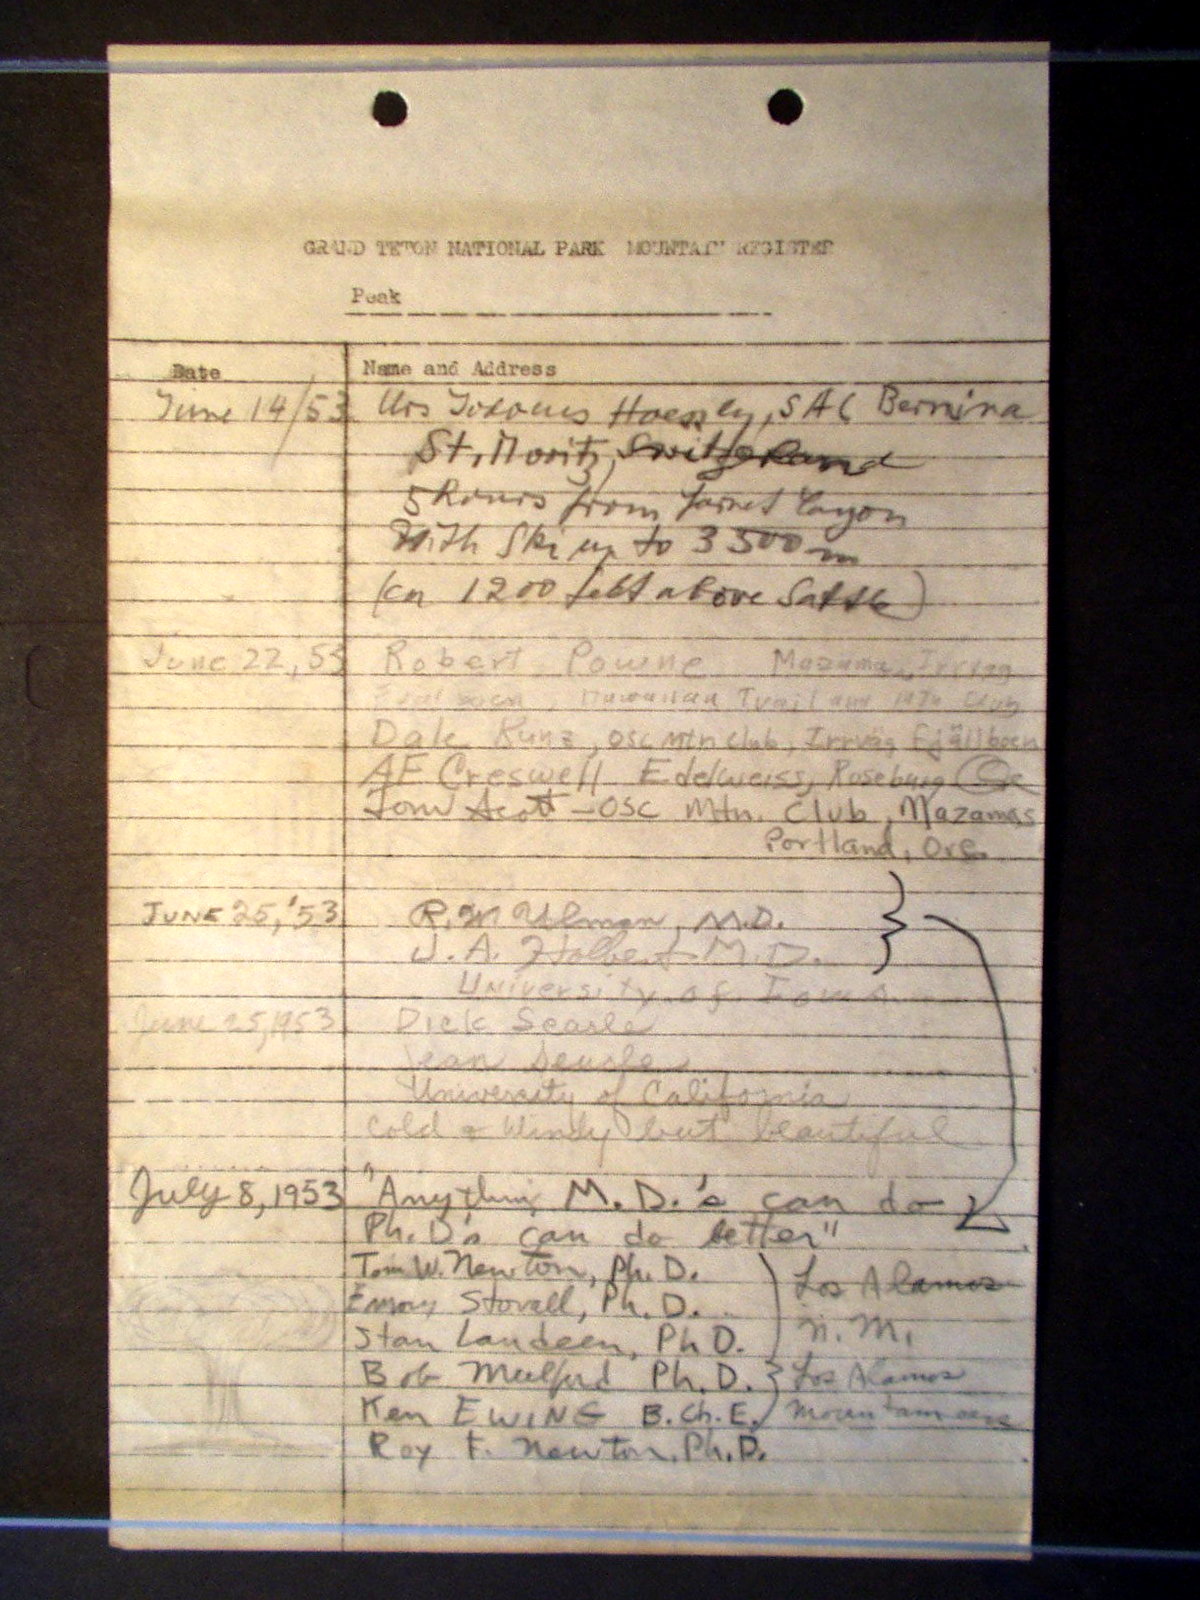 GRAND TETON NATIONAL PARK MOUNTAIN REGISTER
Peak
Date Name and Address
June 14/53 SAC Bernina
St. Moritz, Switzerland
5 hours from
With Ski up to 3500 m
1200 feet above
June 22, 53 Robert Mazama, Irrvag
Trail and Mtn Club
Dale Kunz, OSC Mtn Club, Irrvag Fjällboen
AF Creswell Edelweiss, Roseburg Ore
Tom Scott - OSC Mtn. Club, Mazamas
Portland, Ore.
JUNE 25, '53 R. M. Ulman, M.D.
J. A. Holbert M.D.
University of Iowa
June 25, 1953 Dick Searle
Jean Searle
University of California
Cold & Windy but beautiful
July 8, 1953 "Anything M.D.'s can do
Ph.D's can do better"
Tom W. Newton, Ph.D. Los Alamos
Emory Stovall, Ph.D.
Stan Landeen, Ph D. N.M.
Bob Mulford Ph.D. Los Alamos
Ken EWING B.Ch.E. Mountaineers
Roy F. Newton, Ph.D.